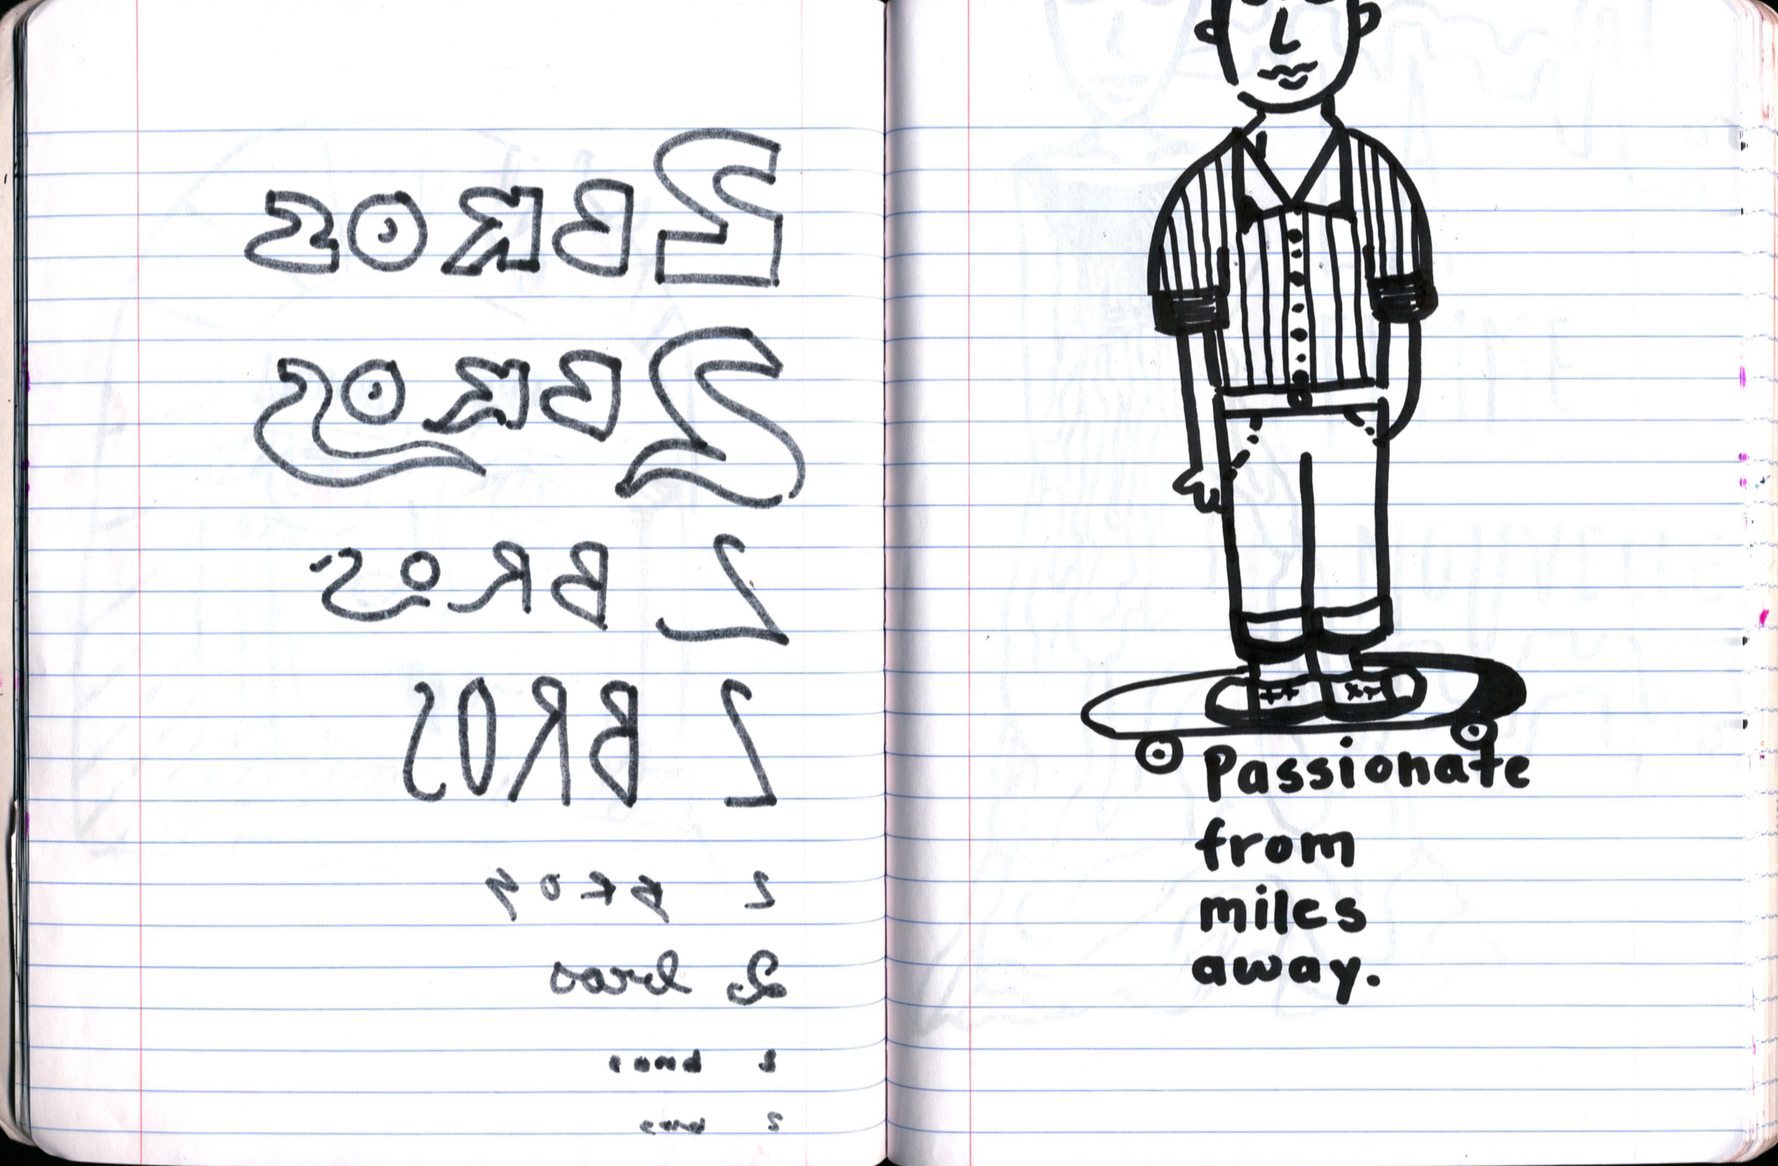 2 BROS
2 BROS
2 BROS
2 BROS
2 BROS
2 bros
2 bros
2 bros
Passionate
from
miles
away.